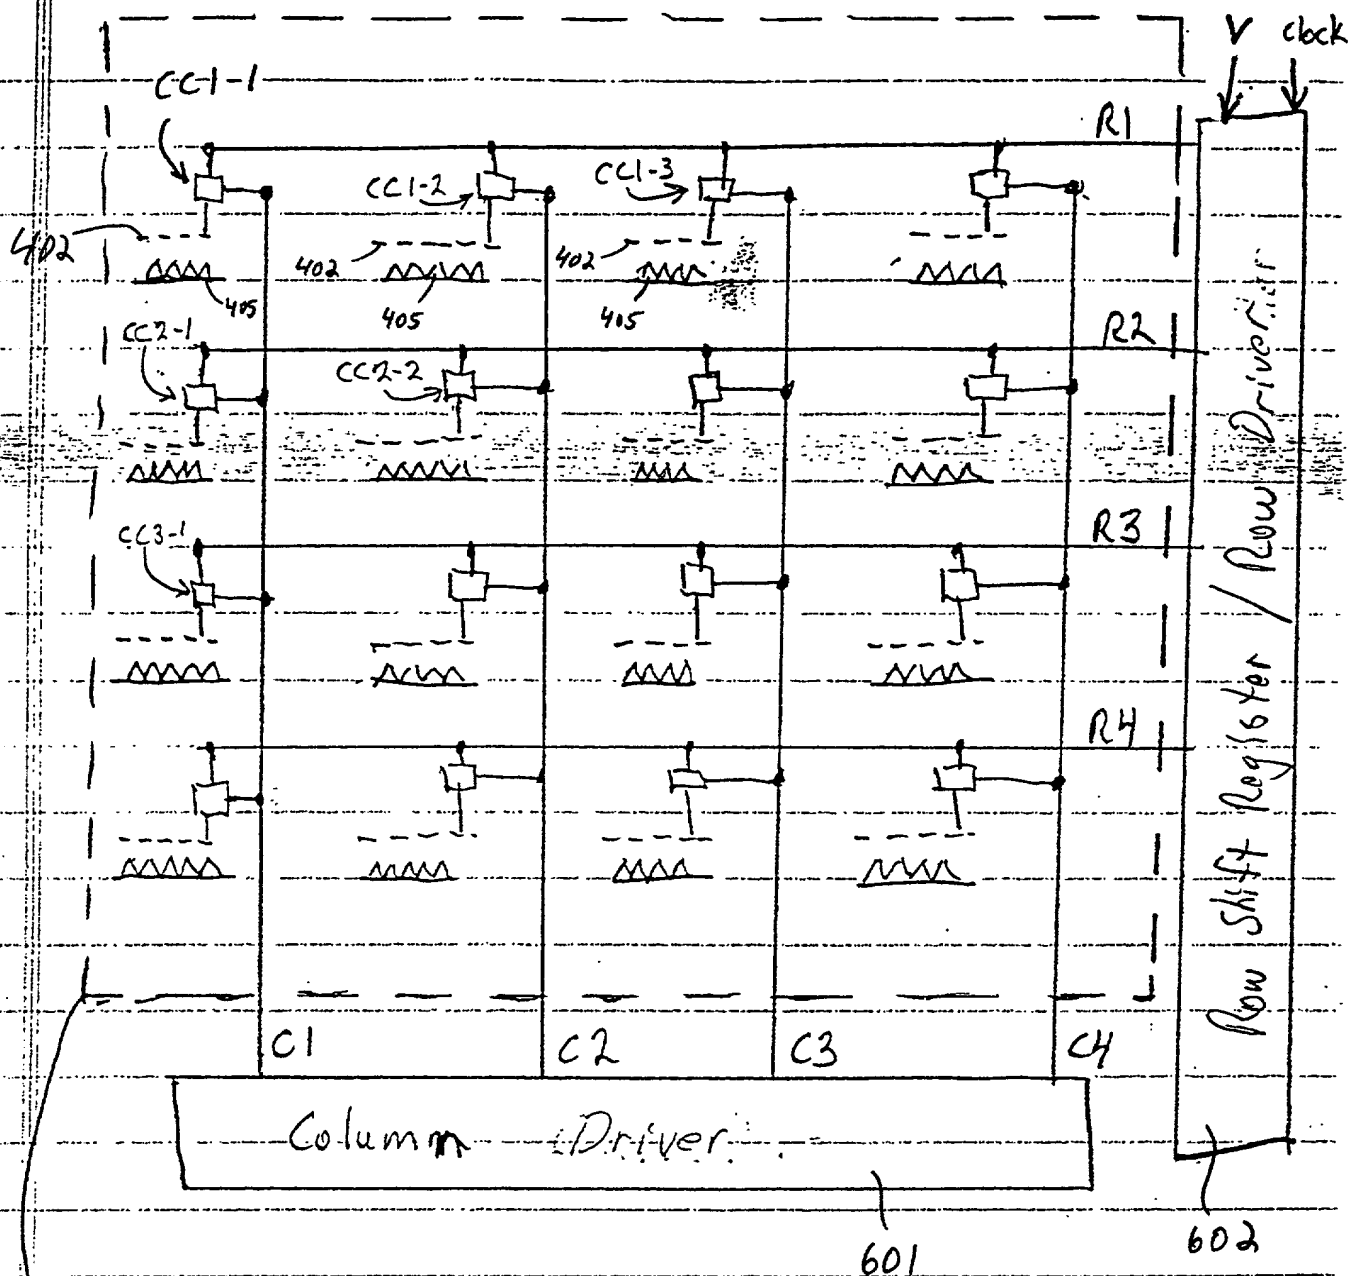 V clock
CC1-1
R1
CC1-2 CC1-3
402
402 402
405 405 405
CC2-1 R2
CC2-2
CC3-1 R3
R4
Row Shift Register / Row Driver
C1 C2 C3 C4
Column Driver
601 602